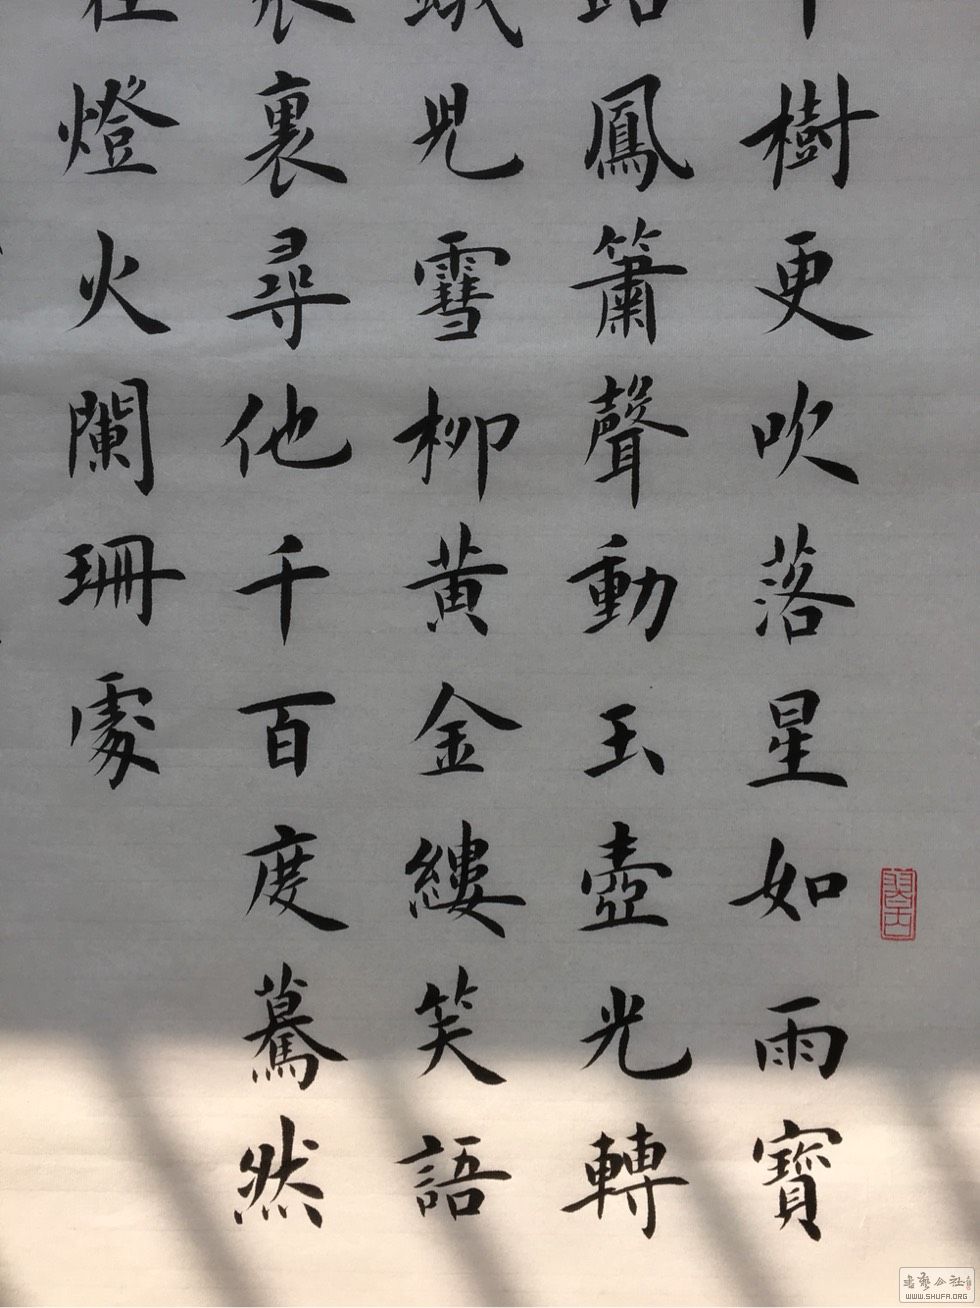 樹更吹落星如雨寶
路鳳簫聲動玉壺光轉
蛾兒雪柳黄金縷笑語
裏尋他千百度驀然
在燈火闌珊處
書藝公社
WWW.SHUFA.ORG